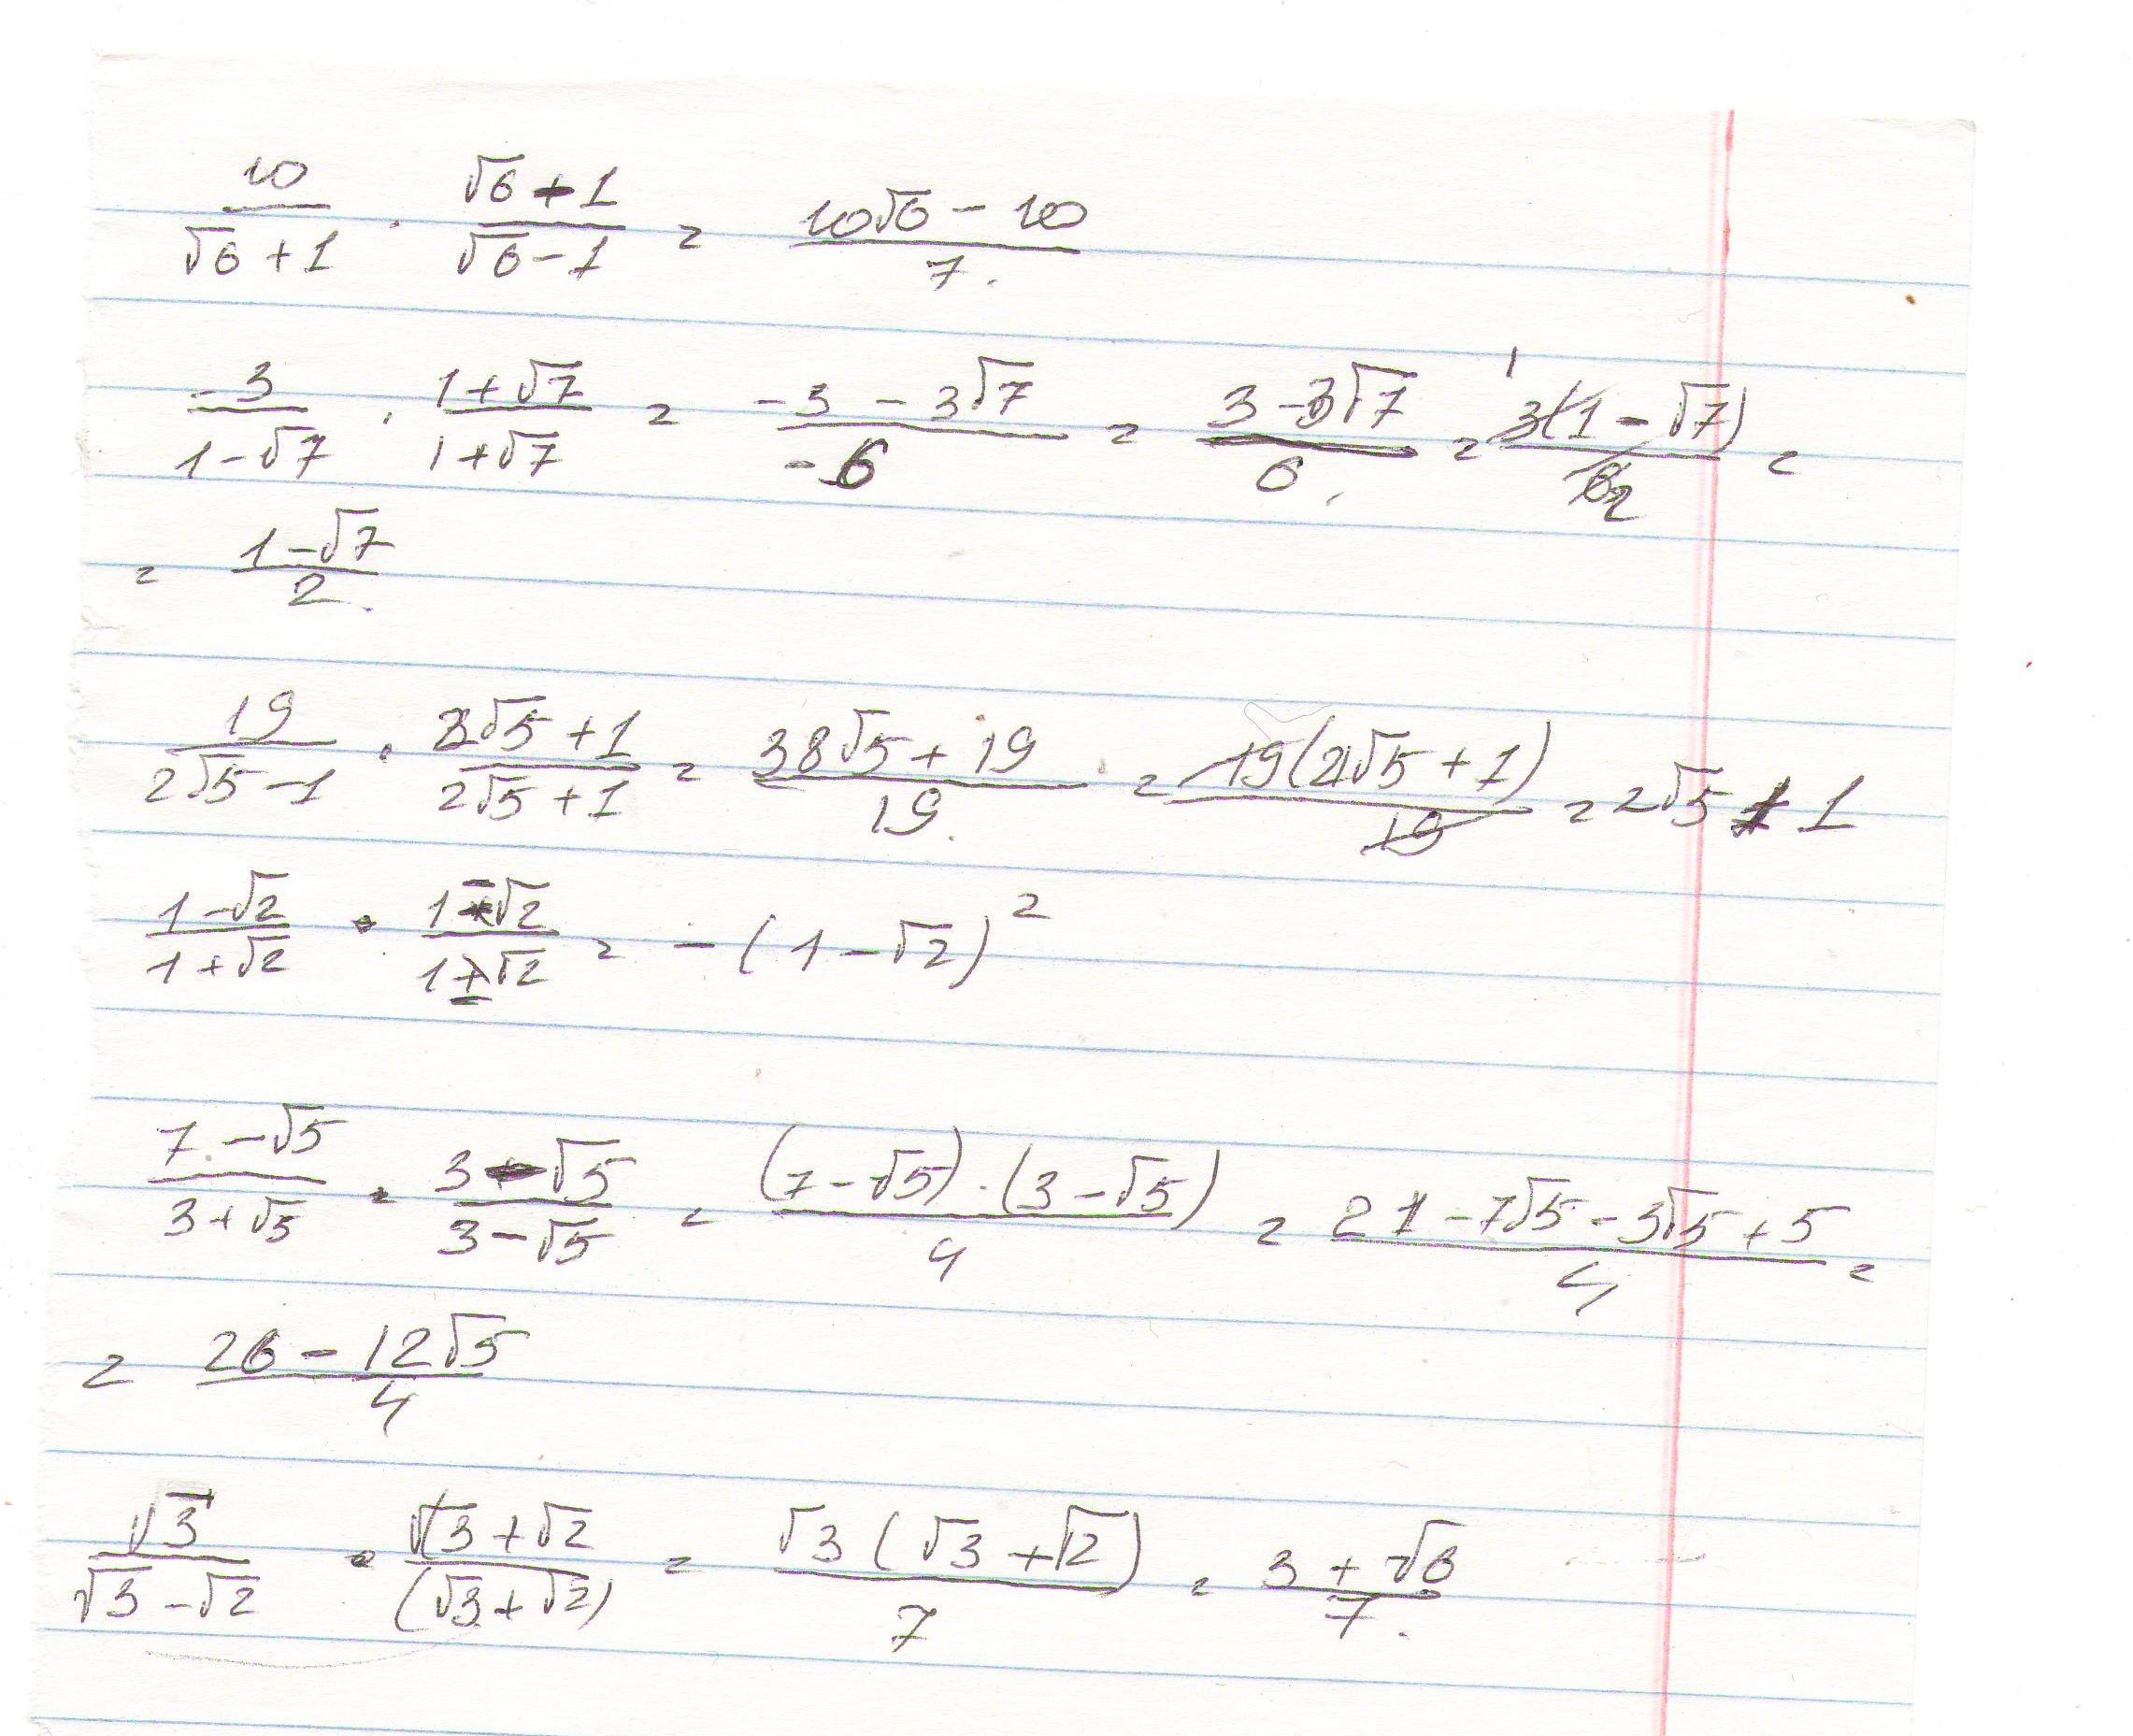 10/(√6+1) · (√6+1)/(√6-1) = (10√6 - 10)/7.
-3/(1-√7) · (1+√7)/(1+√7) = (-3 - 3√7)/-6 = (3-3√7)/6. = 3(1-√7)/6 2 =
= (1-√7)/2.
19/(2√5-1) · (2√5+1)/(2√5+1) = (38√5+19)/19. = 19(2√5+1)/19 = 2√5+1
(1-√2)/(1+√2) · (1-√2)/(1±√2) = -(1-√2)²
(7-√5)/(3+√5) · (3-√5)/(3-√5) = (7-√5)·(3-√5)/4 = (21-7√5-3√5+5)/4 =
= (26-12√5)/4
√3/(√3-√2) · (√3+√2)/(√3+√2) = √3(√3+√2)/7 = (3+√6)/7.